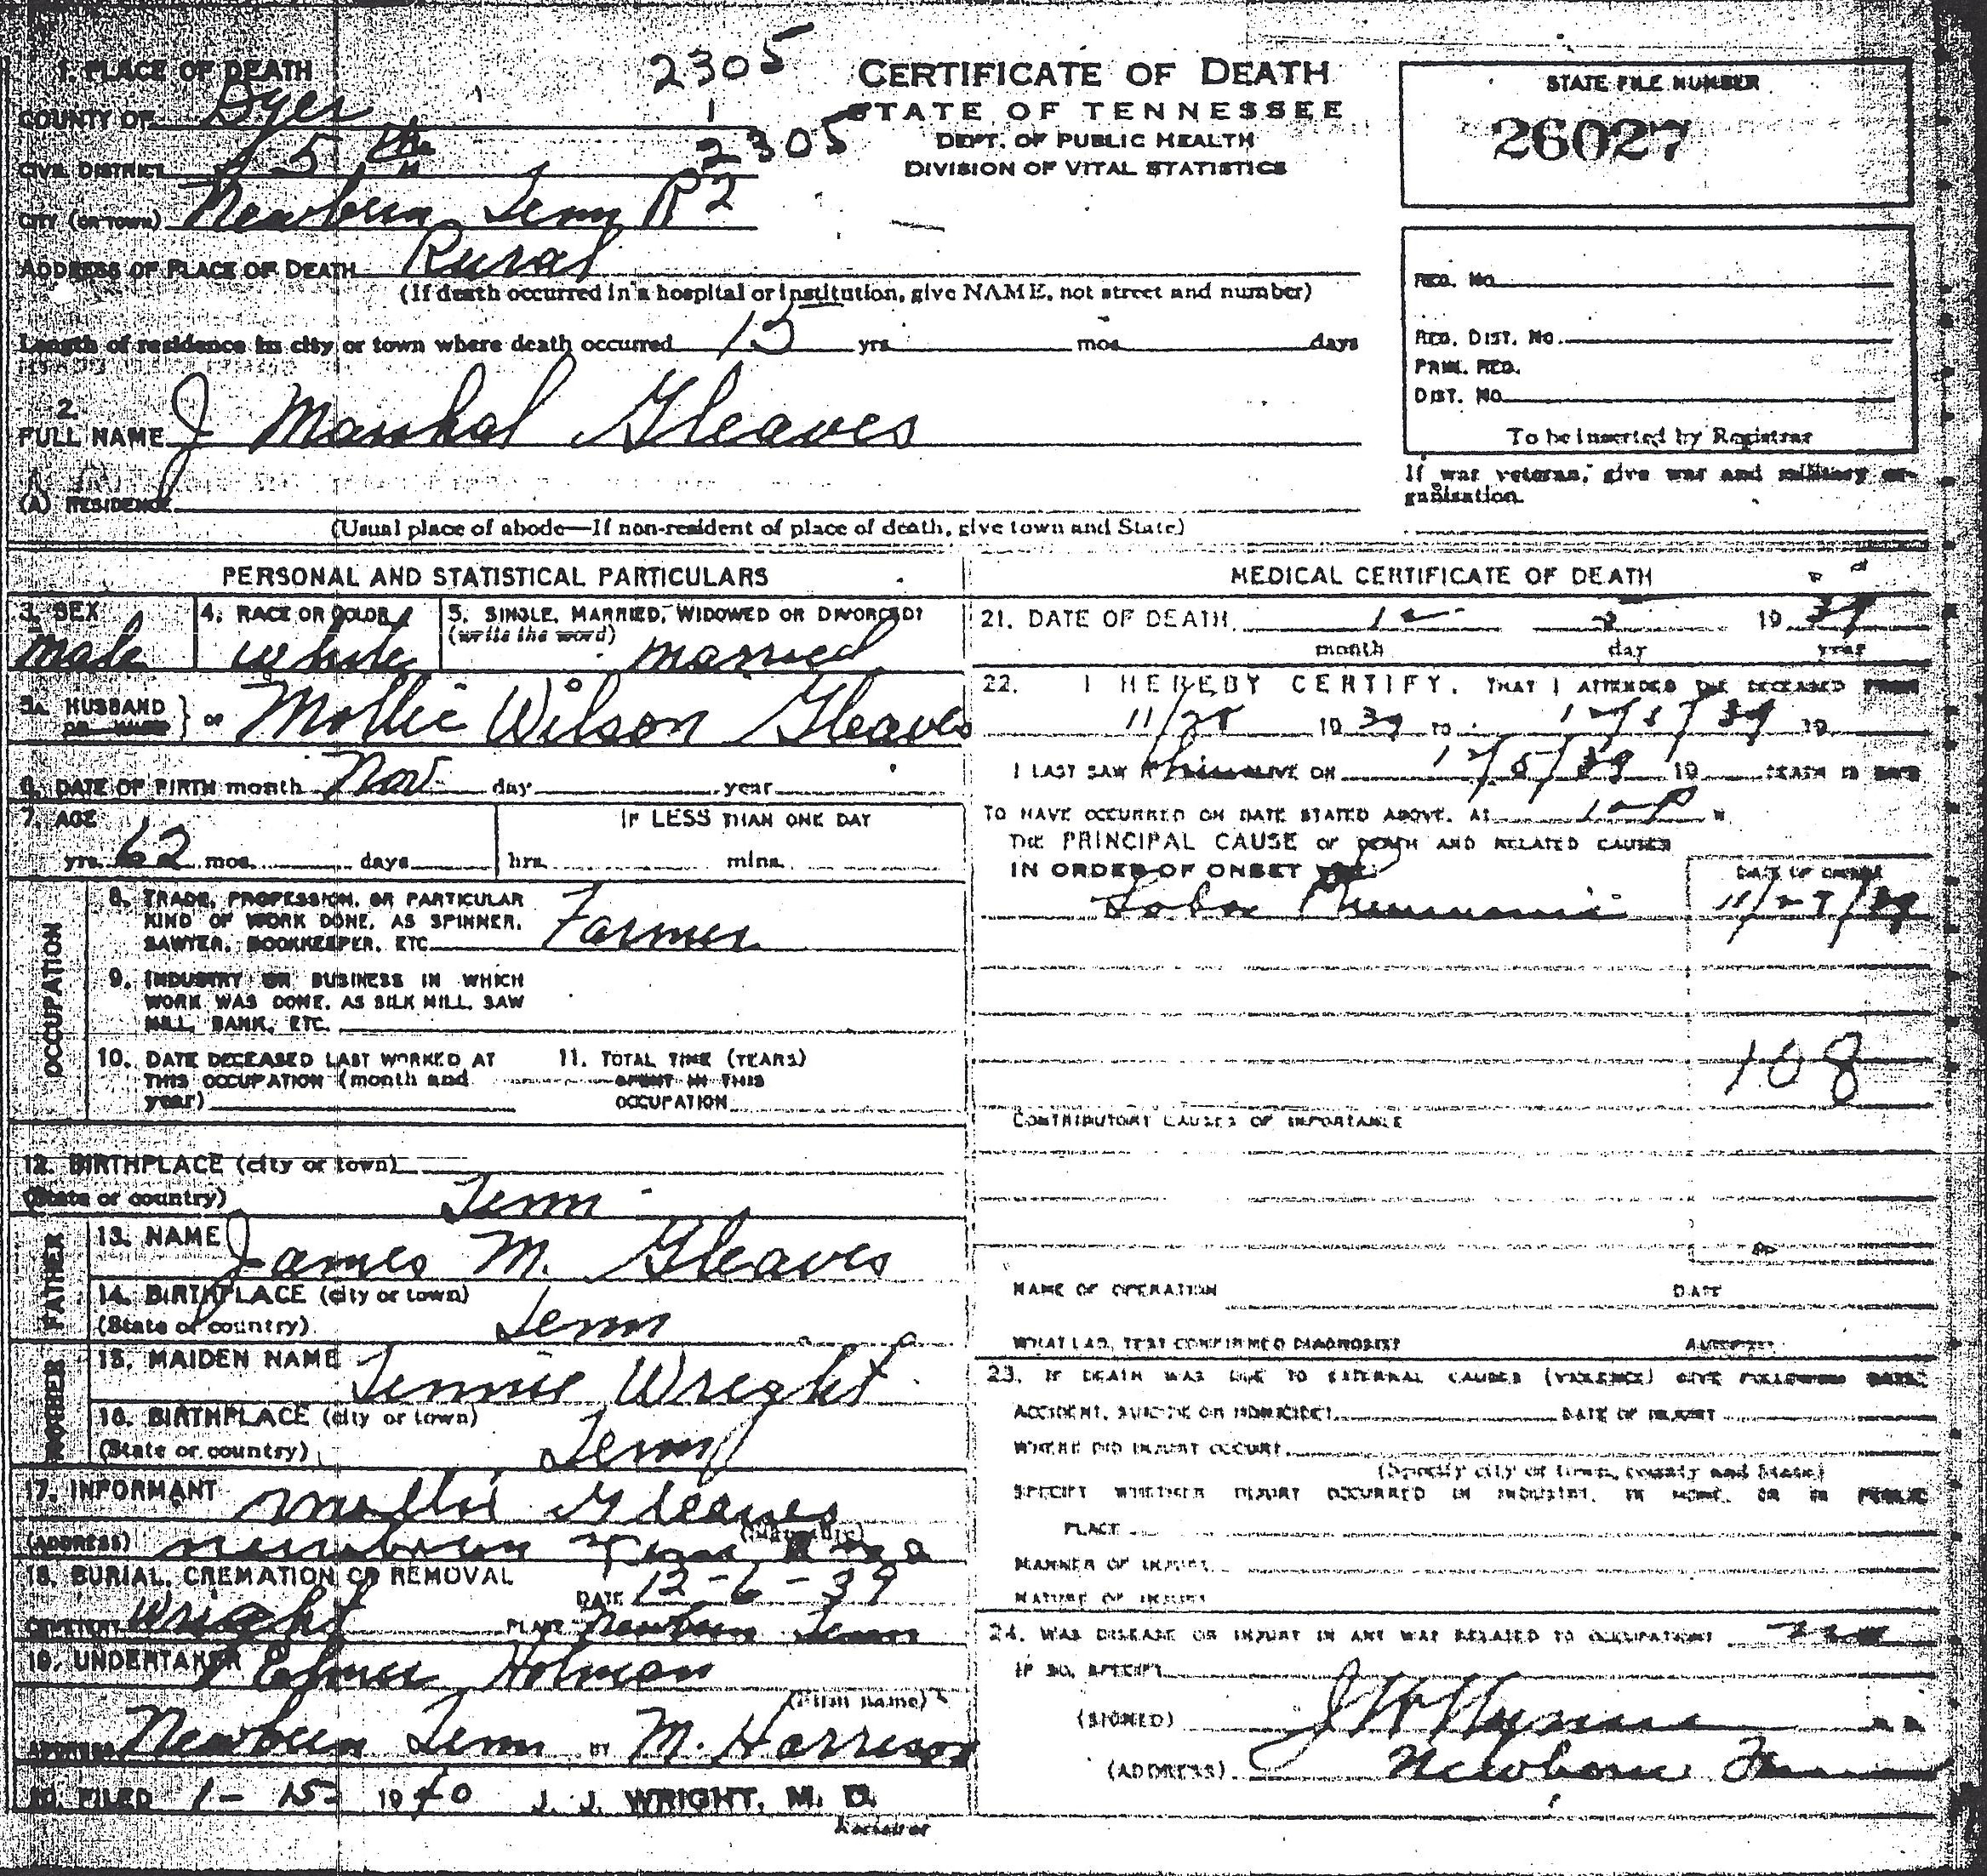 2305
CERTIFICATE OF DEATH
STATE OF TENNESSEE
DEPT. OF PUBLIC HEALTH
DIVISION OF VITAL STATISTICS
STATE FILE NUMBER
26027
1. PLACE OF DEATH
COUNTY OF Dyer
1
2305
CIVIL DISTRICT 5th
CITY (OR TOWN) Newbern Tenn R2
ADDRESS OF PLACE OF DEATH Rural
(If death occurred in a hospital or institution, give NAME, not street and number)
Length of residence in city or town where death occurred 15 yrs mos days
REG. NO.
REG. DIST. NO.
PRIM. REG.
DIST. NO.
To be inserted by Registrar
2.
FULL NAME J Marshal Gleaves
If war veteran, give war and military organization.
(A) RESIDENCE
(Usual place of abode—If non-resident of place of death, give town and State)
PERSONAL AND STATISTICAL PARTICULARS
3. SEX 4. RACE OR COLOR 5. SINGLE, MARRIED, WIDOWED OR DIVORCED?
(write the word)
male white married
5A. HUSBAND
OR WIFE } OF Mollie Wilson Gleaves
6. DATE OF BIRTH month Nov day year
7. AGE IF LESS THAN ONE DAY
yrs. 62 mos. days hrs. mins.
OCCUPATION
8. TRADE, PROFESSION, OR PARTICULAR
KIND OF WORK DONE, AS SPINNER,
SAWYER, BOOKKEEPER, ETC. Farmer
9. INDUSTRY OR BUSINESS IN WHICH
WORK WAS DONE, AS SILK MILL, SAW
MILL, BANK, ETC.
10. DATE DECEASED LAST WORKED AT
THIS OCCUPATION (month and
year)
11. TOTAL TIME (YEARS)
SPENT IN THIS
OCCUPATION
12. BIRTHPLACE (city or town)
(State or country) Tenn
FATHER
13. NAME James M. Gleaves
14. BIRTHPLACE (city or town)
(State or country) Tenn
MOTHER
15. MAIDEN NAME Jennie Wright
16. BIRTHPLACE (city or town)
(State or country) Tenn
17. INFORMANT Mollie Gleaves
(Signature)
(ADDRESS) Newbern Tenn
18. BURIAL, CREMATION OR REMOVAL
DATE 12-6-39
CEMETERY Wright PLACE Newbern Tenn
19. UNDERTAKER Elmer Holman
(Firm name)
ADDRESS Newbern Tenn BY M. Harrison
20. FILED 1-15- 1940 J. J. WRIGHT, M. D.
Registrar
MEDICAL CERTIFICATE OF DEATH
21. DATE OF DEATH 12 5 1939
month day year
22. I HEREBY CERTIFY, THAT I ATTENDED THE DECEASED FROM
11/28 1939 TO 12/5/39 19
I LAST SAW H him ALIVE ON 12/5/39 19 DEATH IS SAID
TO HAVE OCCURRED ON DATE STATED ABOVE, AT M.
THE PRINCIPAL CAUSE OF DEATH AND RELATED CAUSES
IN ORDER OF ONSET
DATE OF ONSET
Lobar Pneumonia 11/27/39
108
CONTRIBUTORY CAUSES OF IMPORTANCE
NAME OF OPERATION DATE
WHAT LAB. TEST CONFIRMED DIAGNOSIS? AUTOPSY
23. IF DEATH WAS DUE TO EXTERNAL CAUSES (VIOLENCE) GIVE FOLLOWING DATA:
ACCIDENT, SUICIDE OR HOMICIDE? DATE OF INJURY
WHERE DID INJURY OCCUR?
(Specify city or town, county and State)
SPECIFY WHETHER INJURY OCCURRED IN INDUSTRY, IN HOME, OR IN PUBLIC
PLACE
MANNER OF INJURY
NATURE OF INJURY
24. WAS DISEASE OR INJURY IN ANY WAY RELATED TO OCCUPATION? no
IF SO, SPECIFY
(SIGNED) M. D.
(ADDRESS) Newbern Tenn